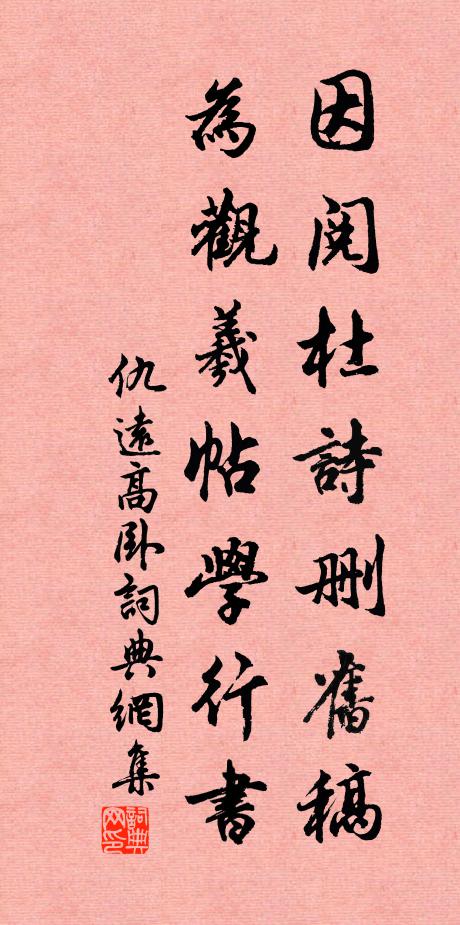 因閱杜詩刪舊稿
為觀羲帖學行書
仇遠高臥詞典網集
詞典网印